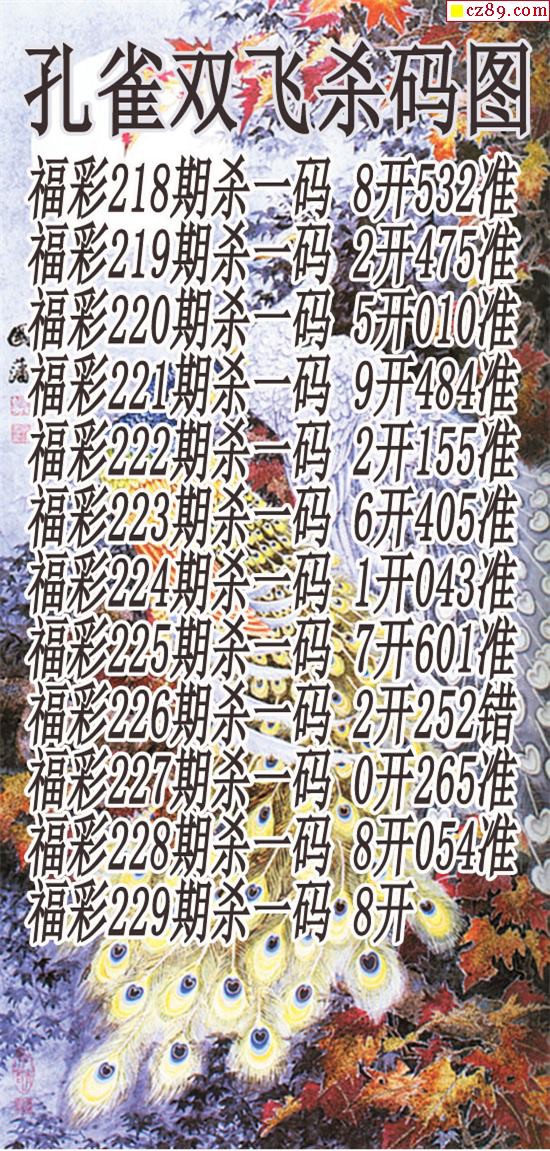 cz89.com
孔雀双飞杀码图
福彩218期杀一码 8开532准
福彩219期杀一码 2开475准
福彩220期杀一码 5开010准
福彩221期杀一码 9开484准
福彩222期杀一码 2开155准
福彩223期杀一码 6开405准
福彩224期杀一码 1开043准
福彩225期杀一码 7开601准
福彩226期杀一码 2开252错
福彩227期杀一码 0开265准
福彩228期杀一码 8开054准
福彩229期杀一码 8开